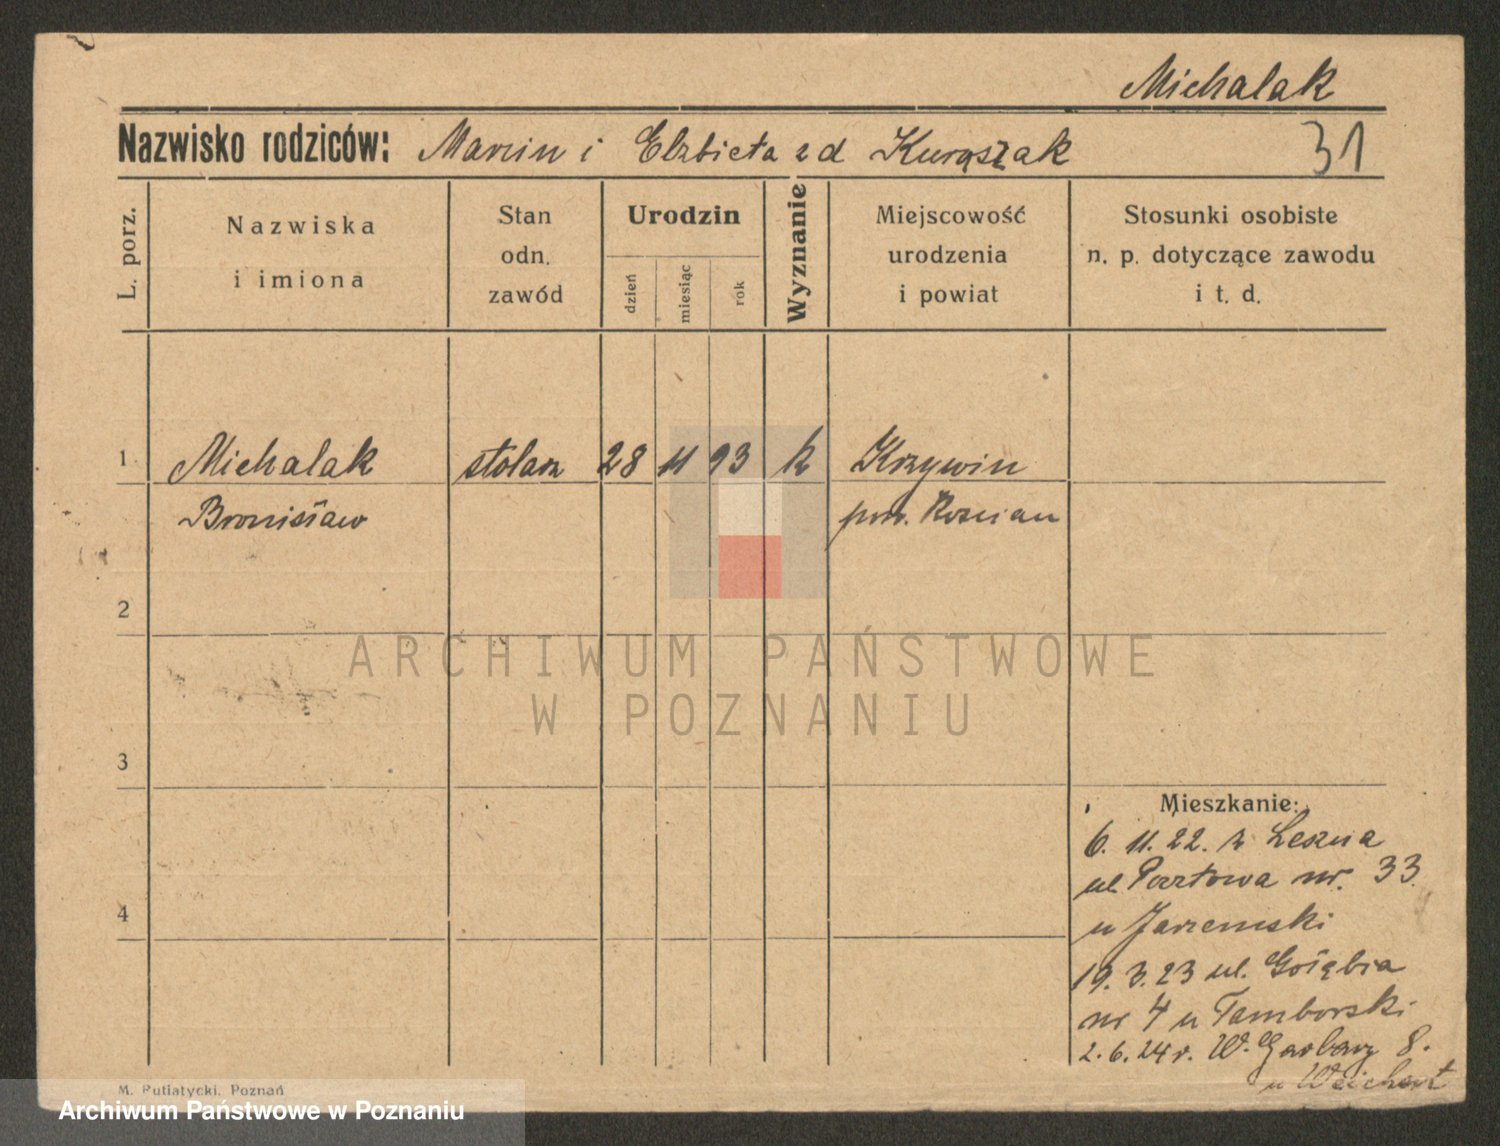 Michalak
Nazwisko rodziców: Marcin i Elzbieta zd Kurąszak
31
L. porz.
Nazwiska
i imiona
Stan
odn.
zawód
Urodzin
dzień
miesiąc
rok
Wyznanie
Miejscowość
urodzenia
i powiat
Stosunki osobiste
n. p. dotyczące zawodu
i t. d.
1 Michalak stolarz 28 11 93 k Krzywin
Bronisław pow. Koscian
2
ARCHIWUM PAŃSTWOWE
W POZNANIU
3
Mieszkanie:
6. 11. 22. z Leszna
ul. Pocztowa nr. 33.
4
u Jarzemski
19. 3. 23 ul. Gołębia
nr 4 u Tamborski
2. 6. 24 r. W. Garbary 8.
u Weichert
M. Putiatycki, Poznań
Archiwum Państwowe w Poznaniu